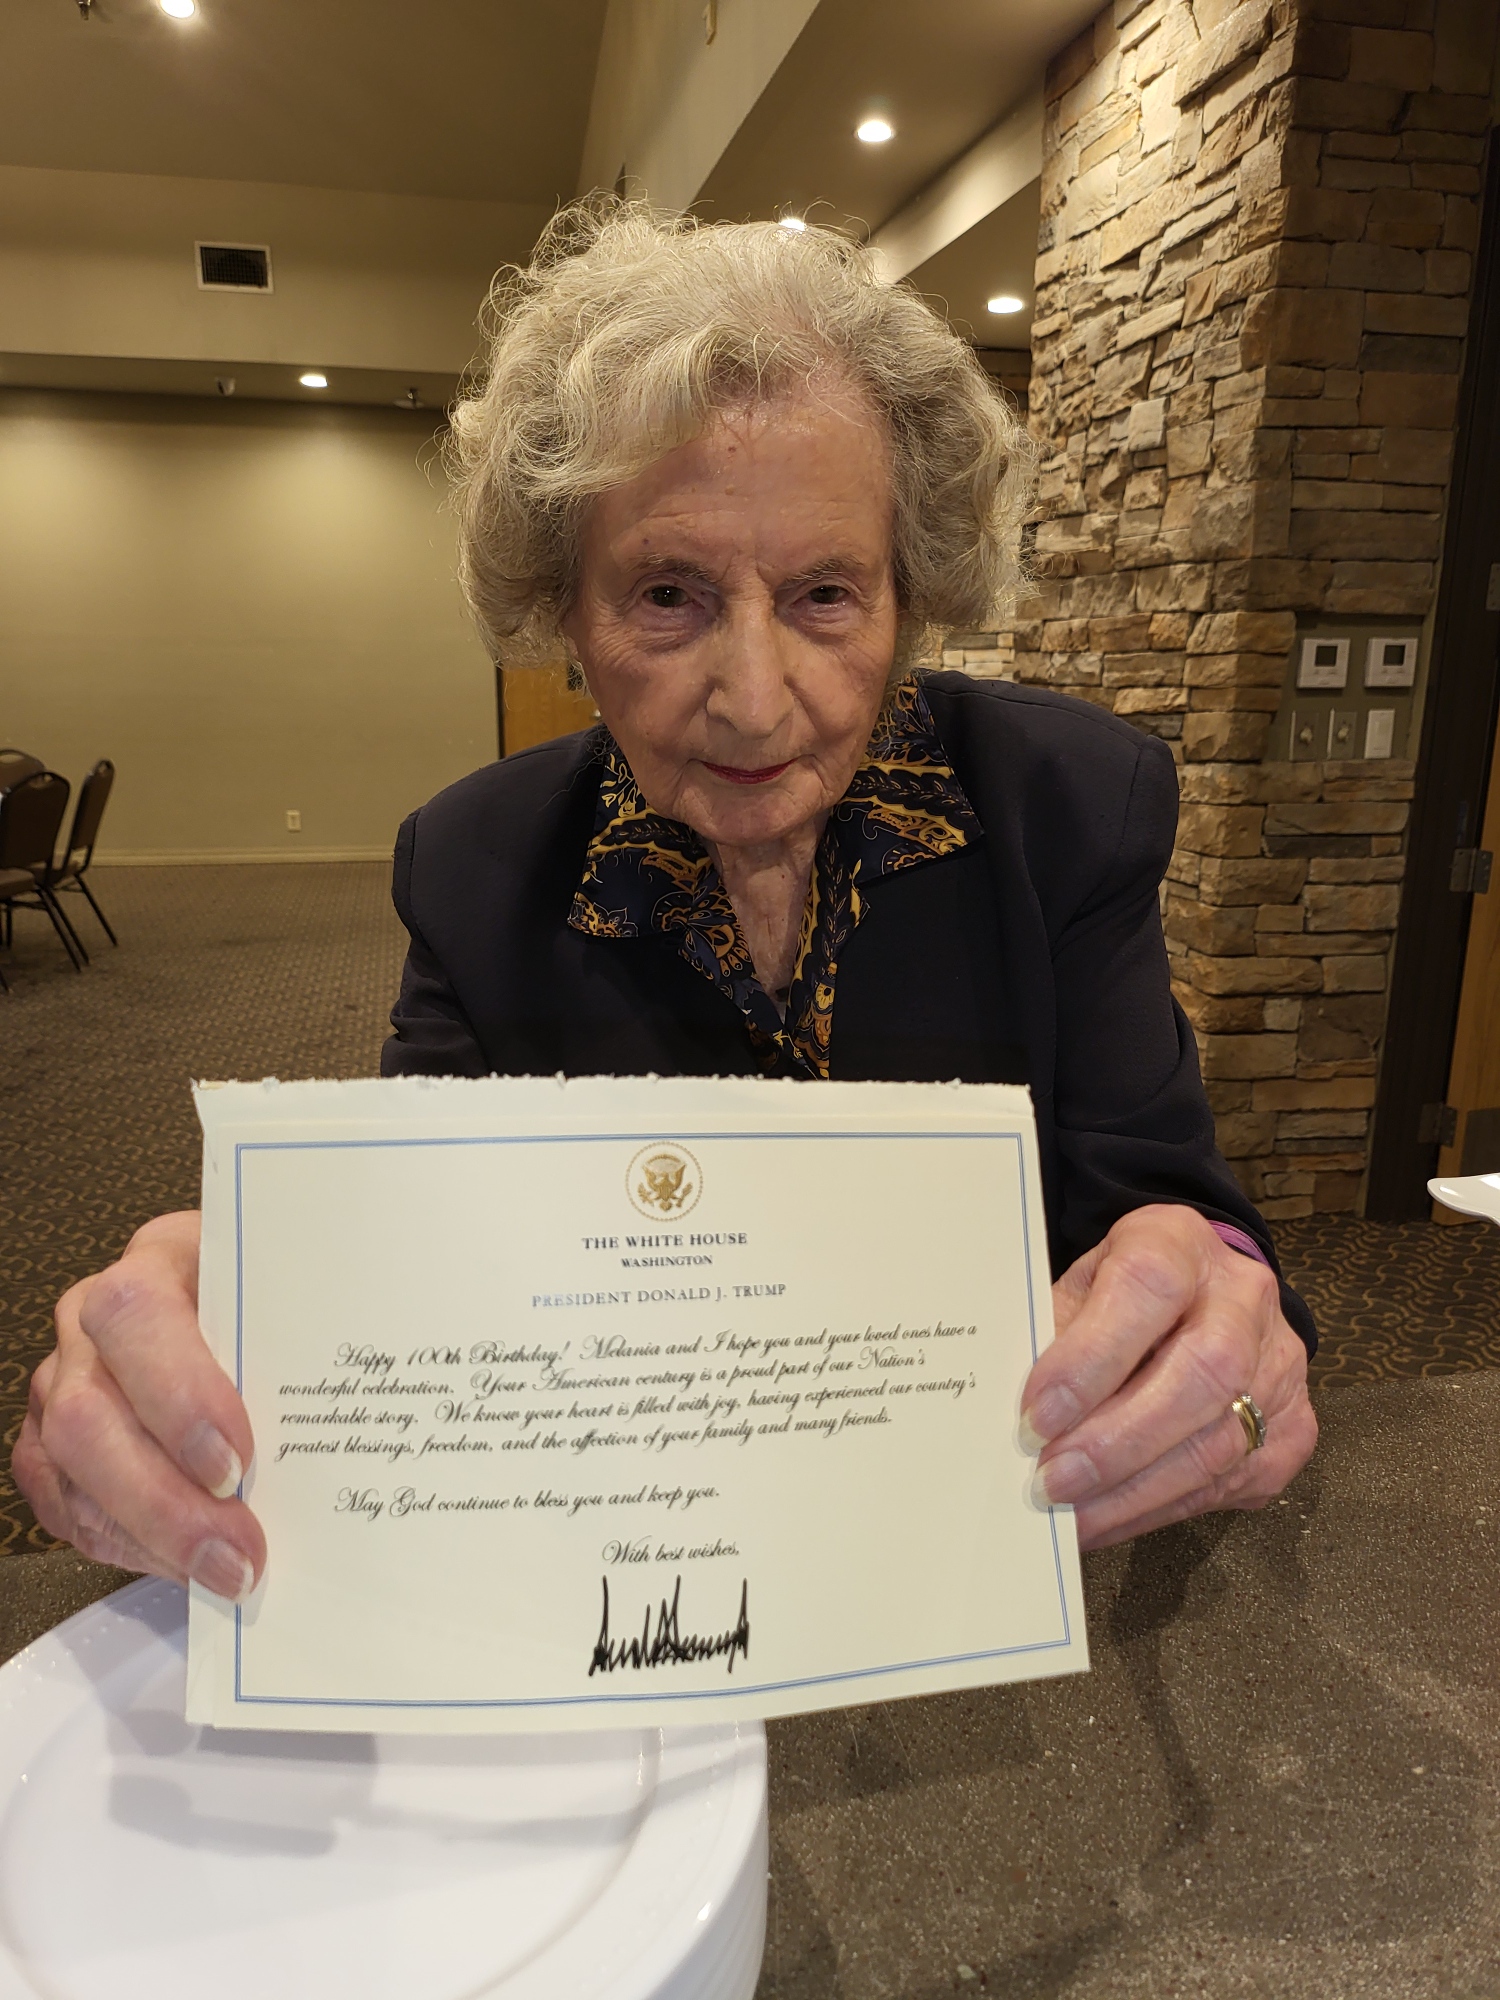 THE WHITE HOUSE
WASHINGTON
PRESIDENT DONALD J. TRUMP
Happy 100th Birthday! Melania and I hope you and your loved ones have a
wonderful celebration. Your American century is a proud part of our Nation's
remarkable story. We know your heart is filled with joy, having experienced our country's
greatest blessings, freedom, and the affection of your family and many friends.
May God continue to bless you and keep you.
With best wishes,